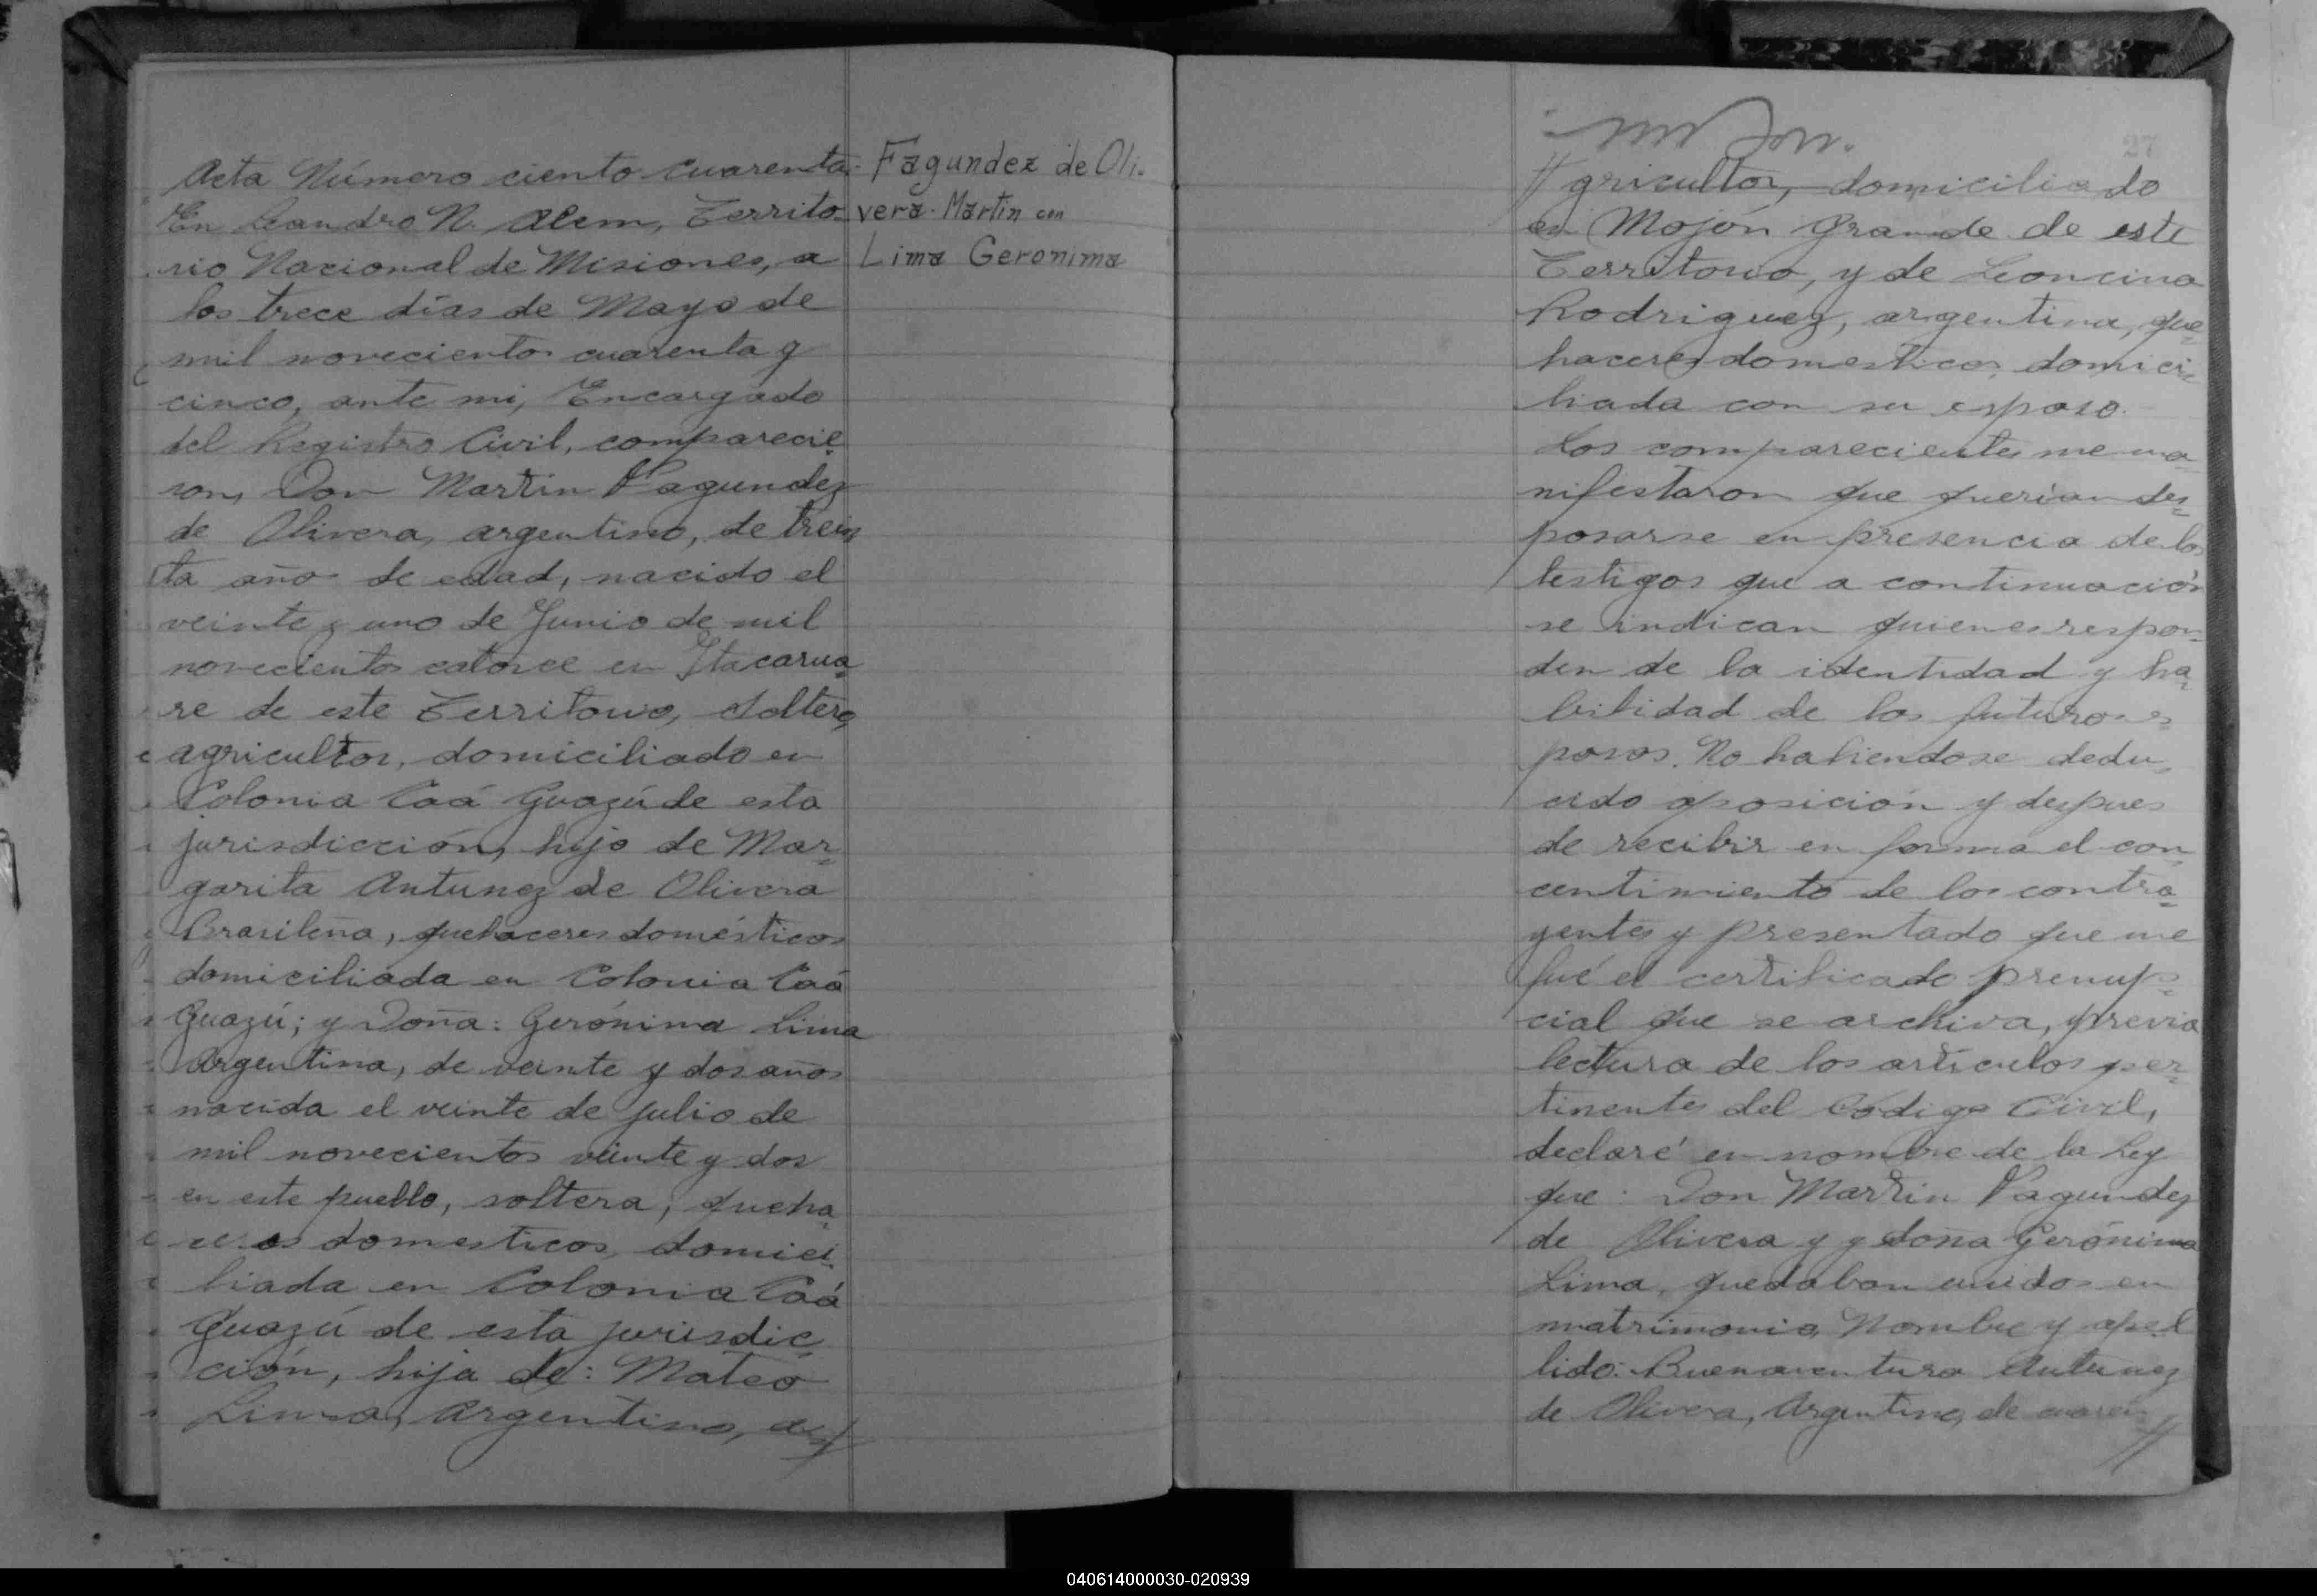 Acta Número ciento cuarenta.
En Leandro N. Alem, Territo-
rio Nacional de Misiones, a
los trece días de Mayo de
mil novecientos cuarenta y
cinco, ante mi, Encargado
del Registro Civil, comparecie-
ron, Don Martin Fagundez
de Olivera, argentino, de trein-
ta años de edad, nacido el
veinte y uno de Junio de mil
novecientos catorce en Itacarua-
re de este Territorio, soltero,
agricultor, domiciliado en
Colonia Caá Guazú de esta
jurisdicción, hijo de Mar-
garita Antunez de Olivera
Brasileña, quehaceres domésticos
domiciliada en Colonia Caá
Guazú; y Doña: Gerónima Lima
Argentina, de veinte y dos años
nacida el veinte de Julio de
mil novecientos veinte y dos
en este pueblo, soltera, queha-
ceres domesticos, domici-
liada en Colonia Caá
Guazú de esta jurisdic-
ción, hija de: Mateo
Lima, Argentino, a//
Fagundez de Oli-
vera - Martin con
Lima Geronima
27
//gricultor, domiciliado
en Mojón Grande de este
Territorio, y de Leoncina
Rodriguez, argentina, que-
haceres domesticos, domici-
liada con su esposo.-
Los comparecientes me ma-
nifestaron que querían des-
posarse en presencia de los
testigos que a continuación
se indican quienes respon-
den de la identidad y ha-
bilidad de los futuros es-
posos. No habiendose dedu-
cido oposición y despues
de recibir en forma el con-
centimiento de los contra-
yentes y presentado que me
fué el certificado prenup-
cial que se archiva, previa
lectura de los artículos per-
tinentes del Código Civil,
declaré en nombre de la Ley
que: Don Martin Fagundez
de Olivera y y doña Gerónima
Lima, quedaban unidos en
matrimonio, Nombre y apel-
lido: Buenaventura Antunez
de Olivera, Argentino, de cuaren-//
040614000030-020939